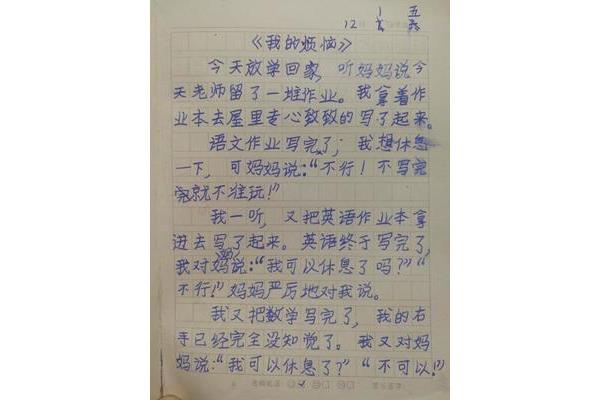 12 1 五
《我的烦恼》
今天放学回家,听妈妈说今
天老师留了一堆作业。我拿着作
业本去屋里专心致致的写了起来。
语文作业写完了;我想休息
一下,可妈妈说:“不行!不写完
完就不准玩!”
我一听,又把英语作业本拿
进去写了起来。英语终于写完了,
我对妈说:“我可以休息了吗?”“
不行!”妈妈严厉地对我说。
我又把数学写完了,我的右
手已经完全没知觉了。我又对妈
妈说:“我可以休息了?”“不可以!”